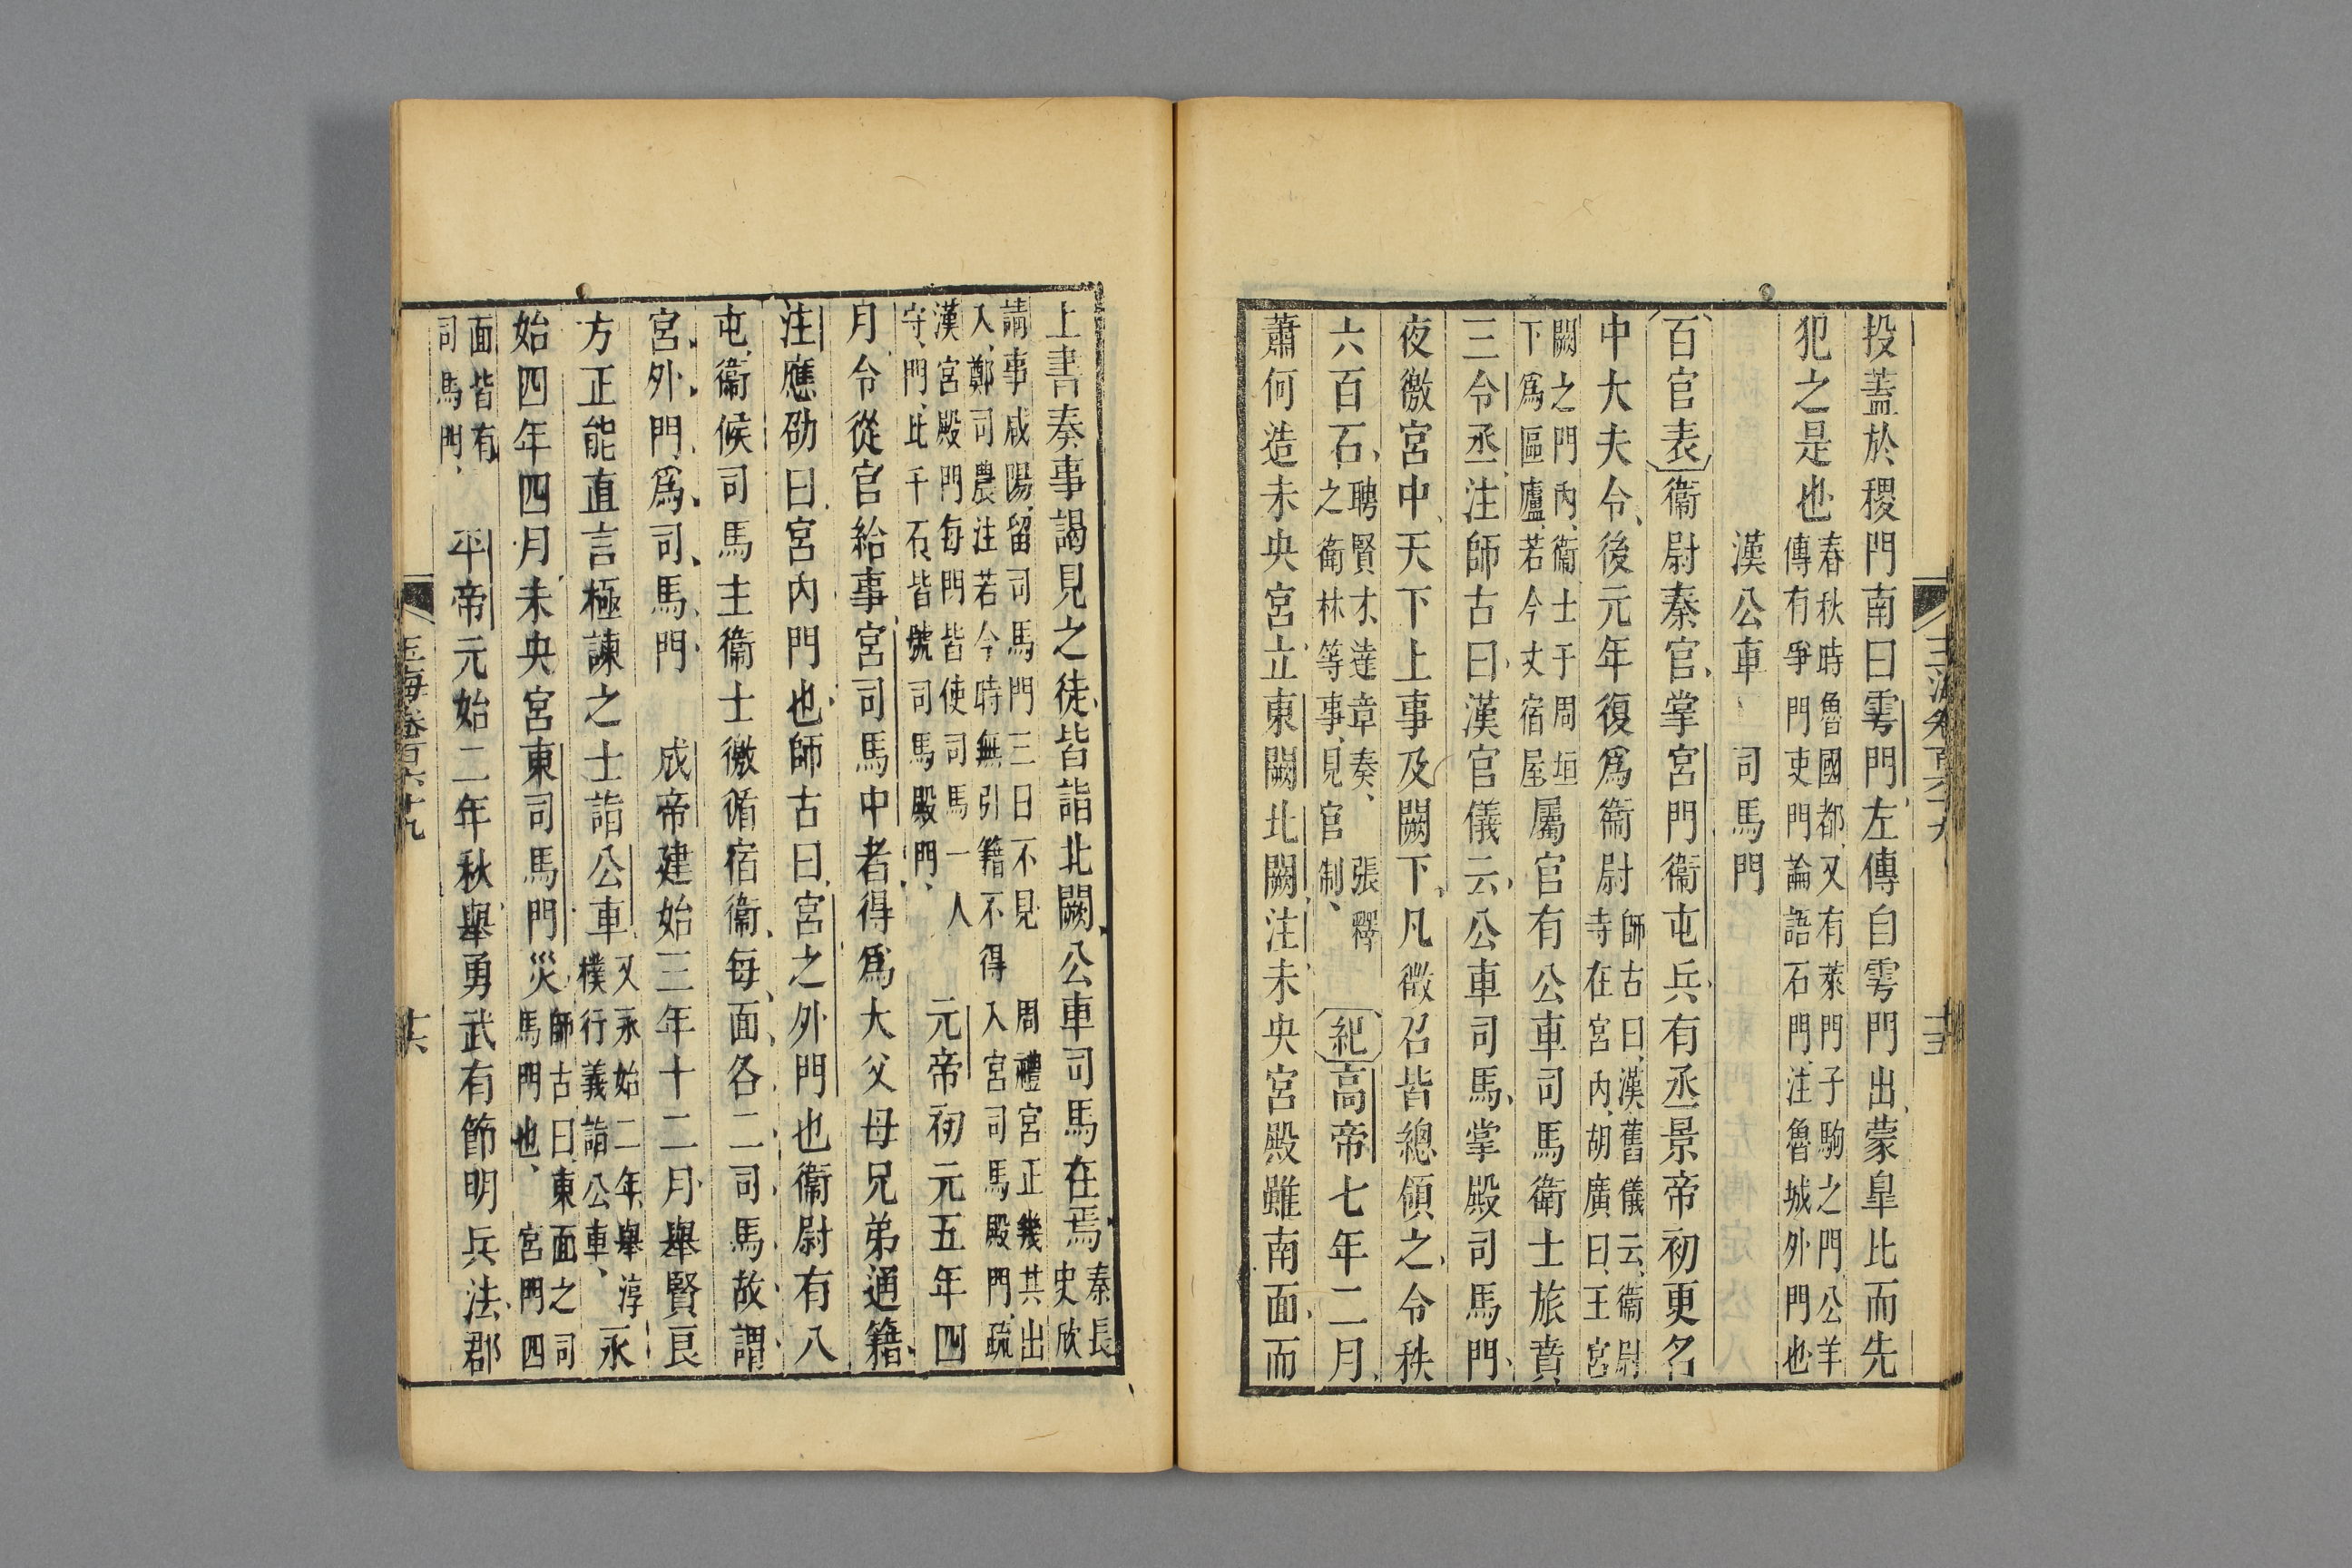 玉海卷百六十九
十五
投蓋於稷門南曰雩門左傳自雩門出蒙皐比而先
犯之是也春秋時魯國都又有萊門子駒之門公羊傳有爭門吏門論語石門注魯城外門也
漢公車　司馬門
百官表衞尉秦官掌宮門衞屯兵有丞景帝初更名
中大夫令後元年復爲衞尉師古曰漢舊儀云衞尉寺在宮內胡廣曰王宮
闕之門內衞士于周垣下爲區廬若今丈宿屋屬官有公車司馬衞士旅賁
三令丞注師古曰漢官儀云公車司馬掌殿司馬門
夜徼宮中天下上事及闕下凡徵召皆總領之令秩
六百石聘賢才達章奏　張釋之衞林等事見官制　紀高帝七年二月
蕭何造未央宮立東闕北闕注未央宮殿雖南面而
上書奏事謁見之徒皆詣北闕公車司馬在焉秦長史欣
請事咸陽留司馬門三日不見　周禮宮正幾其出入鄭司農注若今時無引籍不得入宮司馬殿門疏
漢宮殿門每門皆使司馬一人守門比千石皆號司馬殿門　元帝初元五年四
月令從官給事宮司馬中者得爲大父母兄弟通籍
注應劭曰宮內門也師古曰宮之外門也衞尉有八
屯衞候司馬主衞士徼循宿衞每面各二司馬故謂
宮外門爲司馬門　成帝建始三年十二月舉賢良
方正能直言極諫之士詣公車又永始二年舉淳樸行義詣公車　永
始四年四月未央宮東司馬門災師古曰東面之司馬門也　宮門四
面皆有司馬門　平帝元始二年秋舉勇武有節明兵法郡
玉海卷百六十九
十六